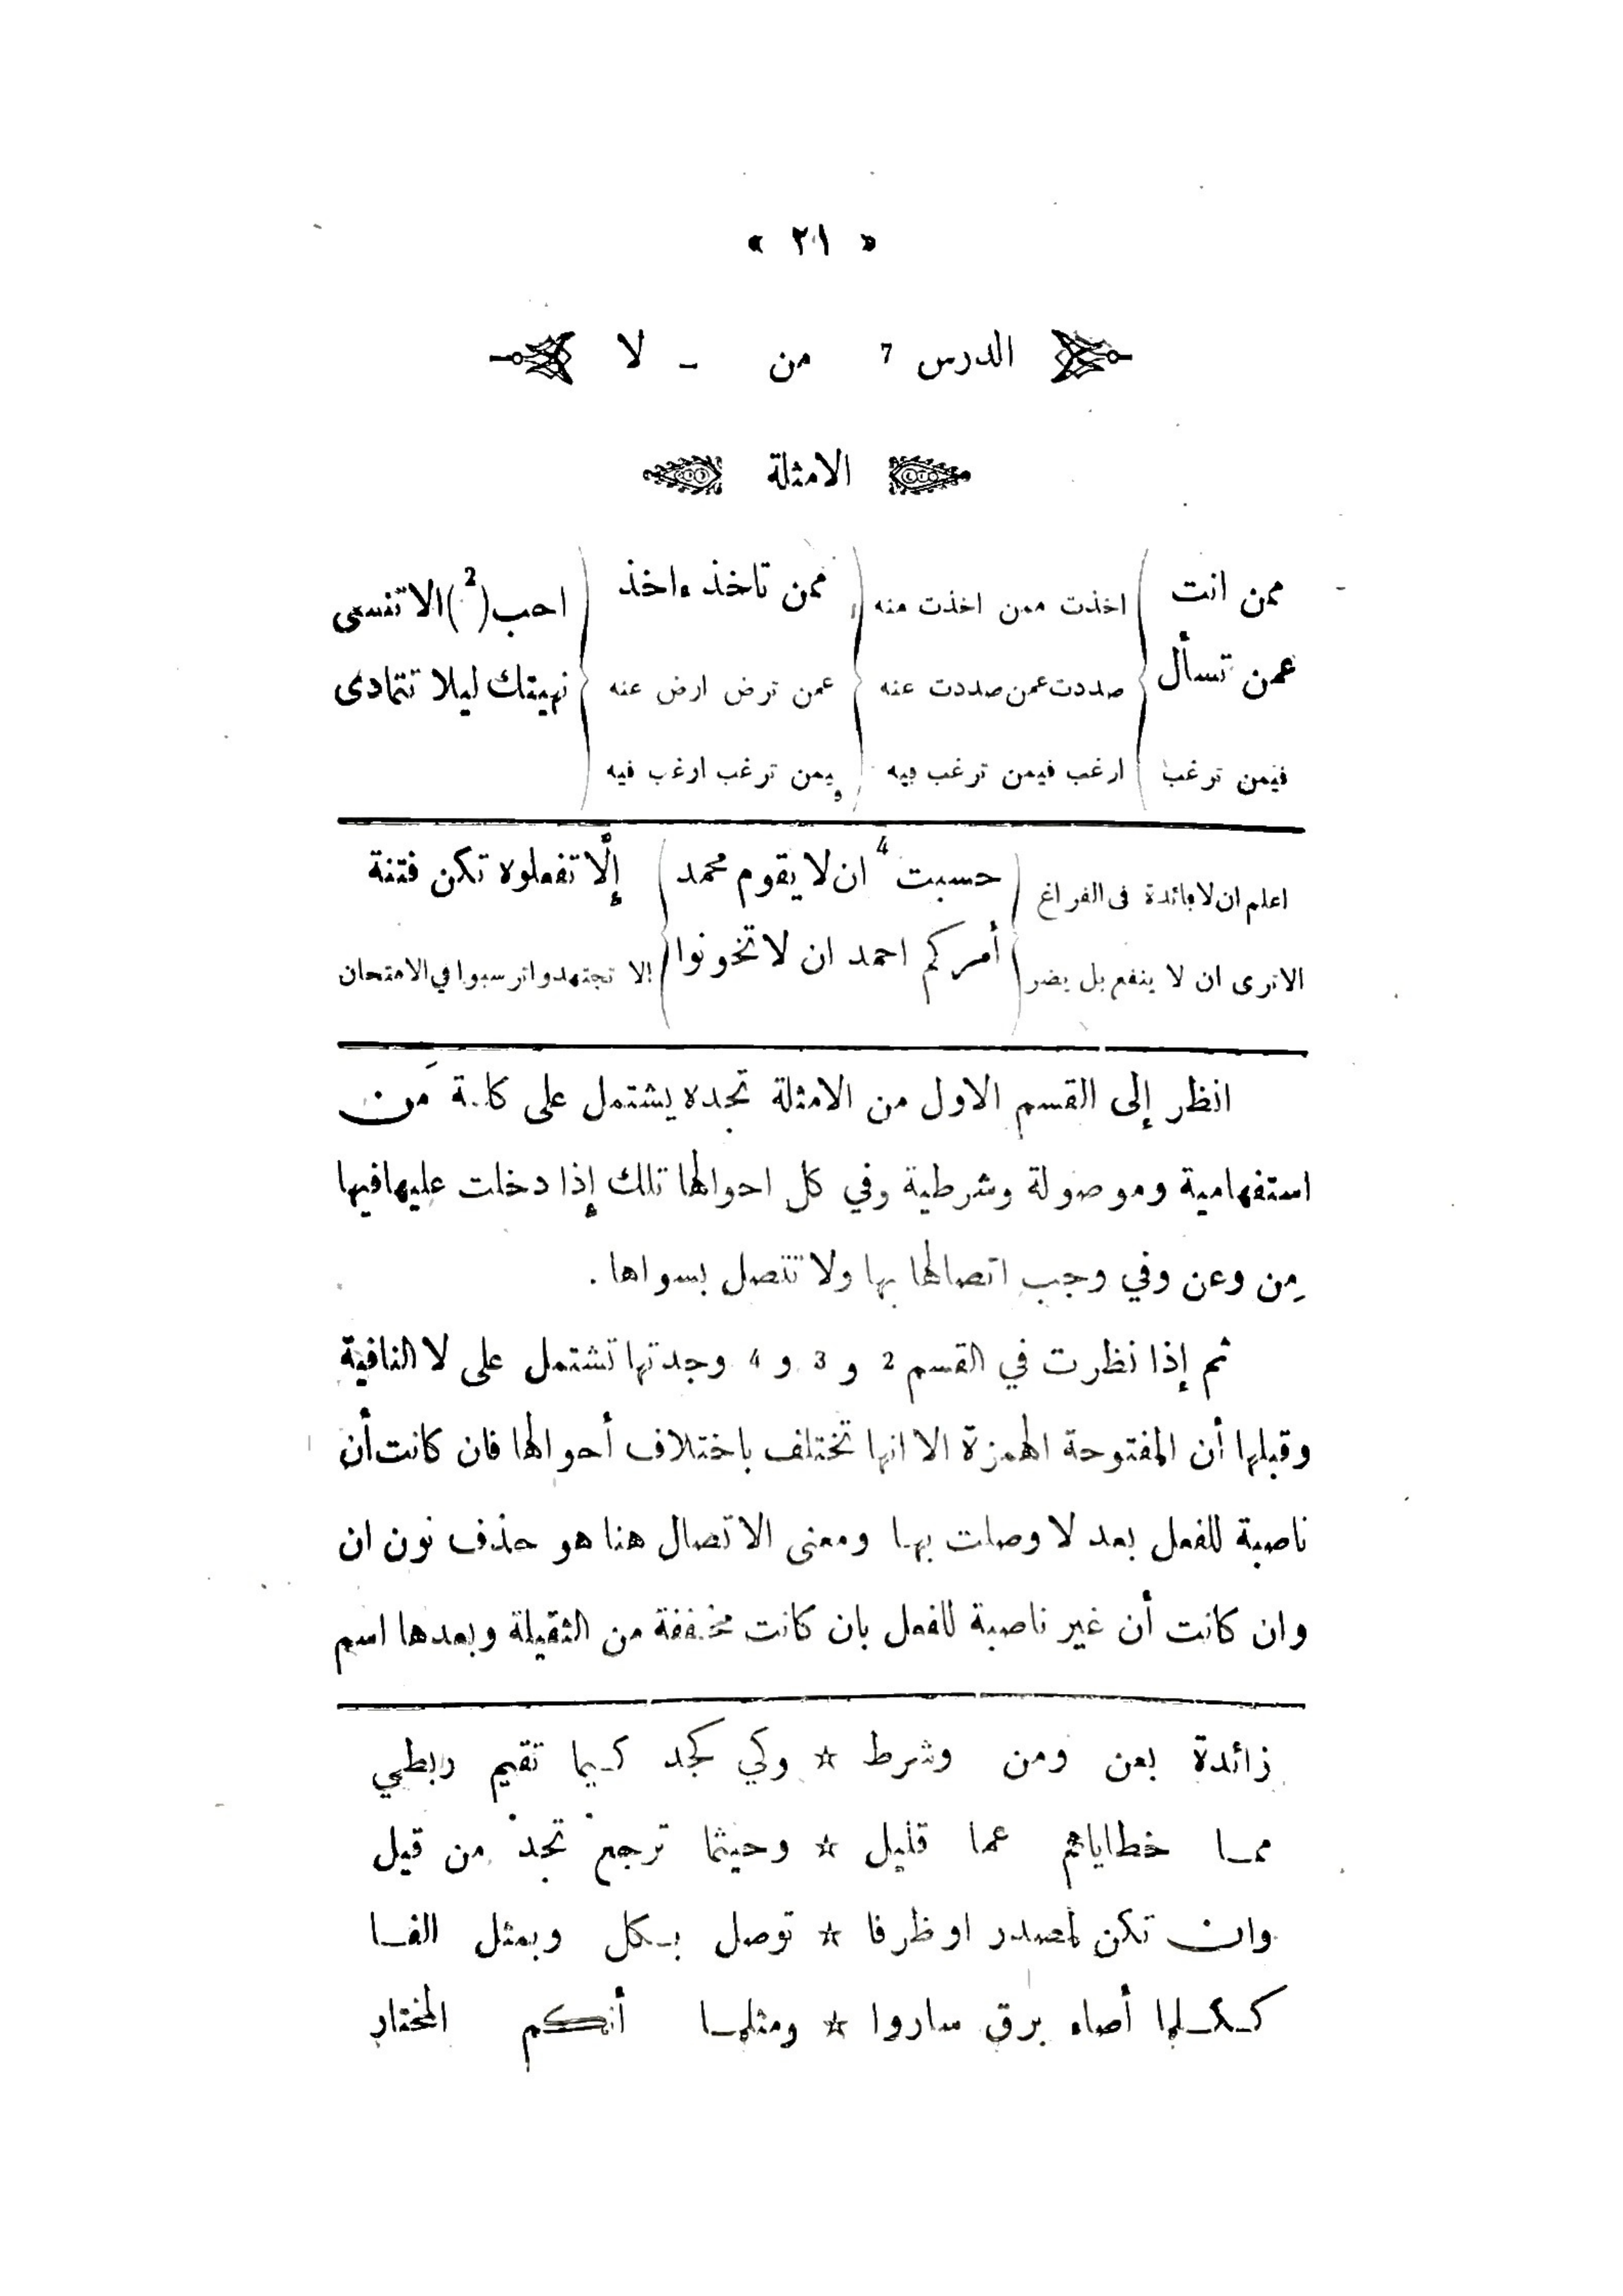 « ٢١ »
الدرس 7 من _ لا
الامثلة
ممن انت } اخذت ممن اخذت منه } ممن تاخذ ءاخذ } احب (2) الا تنسى
عمن تسأل } صددت عمن صددت عنه } عمن ترض ارض عنه } نهيتك ليلا تتمادى
فيمن ترغب } ارغب فيمن ترغب فيه } فيمن ترغب ارغب فيه }
اعلم ان لا فائدة فى الفراغ } حسبت 4 ان لا يقوم محمد } إلّا تفعلوه تكن فتنة
الا ترى ان لا ينفع بل يضر } أمركم احمد ان لا تخونوا } إلا تجتهدوا ترسبوا في الامتحان
انظر إلى القسم الاول من الامثلة تجده يشتمل على كلمة مَن
استفهامية وموصولة وشرطية وفي كل احوالها تلك إذا دخلت عليها فيها
مِن وعن وفي وجب اتصالها بها ولا تتصل بسواها .
ثم إذا نظرت في القسم 2 و 3 و 4 وجدتها تشتمل على لا النافية
وقبلها أن المفتوحة الهمزة الا انها تختلف باختلاف أحوالها فان كانت أن
ناصبة للفعل بعد لا وصلت بها ومعنى الاتصال هنا هو حذف نون ان
وان كانت أن غير ناصبة للفعل بان كانت مخففة من الثقيلة وبعدها اسم
زائدة بعن ومن وشرط ☆ وكي كجد كيما تقيم ربطي
ممـا خطاياهم عما قليل ☆ وحيثما ترجع تجد من قيل
وان تكن لمصدر او ظرفا ☆ توصل بـكل وبمثل الفـا
كـكـلما أضاء برق ساروا ☆ ومثلمـا أنـكم المختار